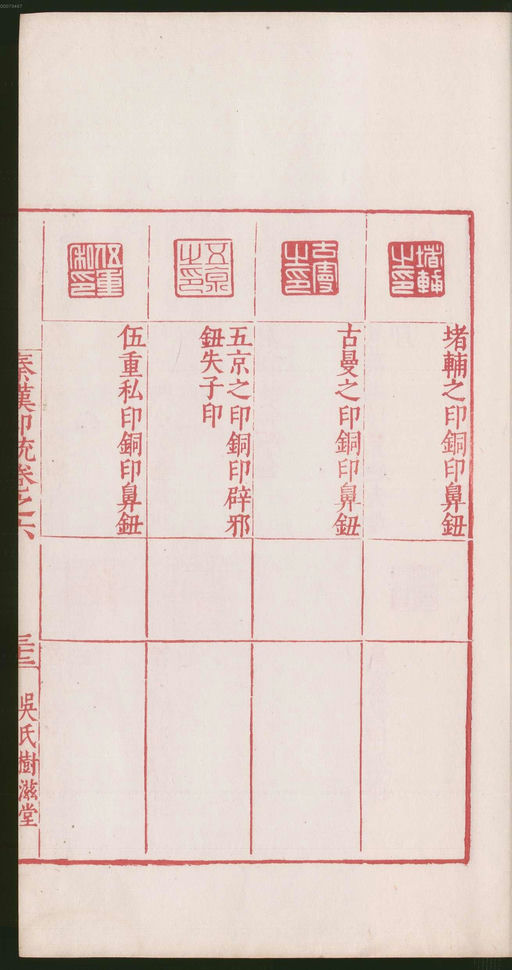 堵輔之印
堵輔之印銅印鼻鈕
古曼之印
古曼之印銅印鼻鈕
五京之印
五京之印銅印辟邪
鈕失子印
伍重私印
伍重私印銅印鼻鈕
秦漢印統卷之六
吳氏樹滋堂
00073447